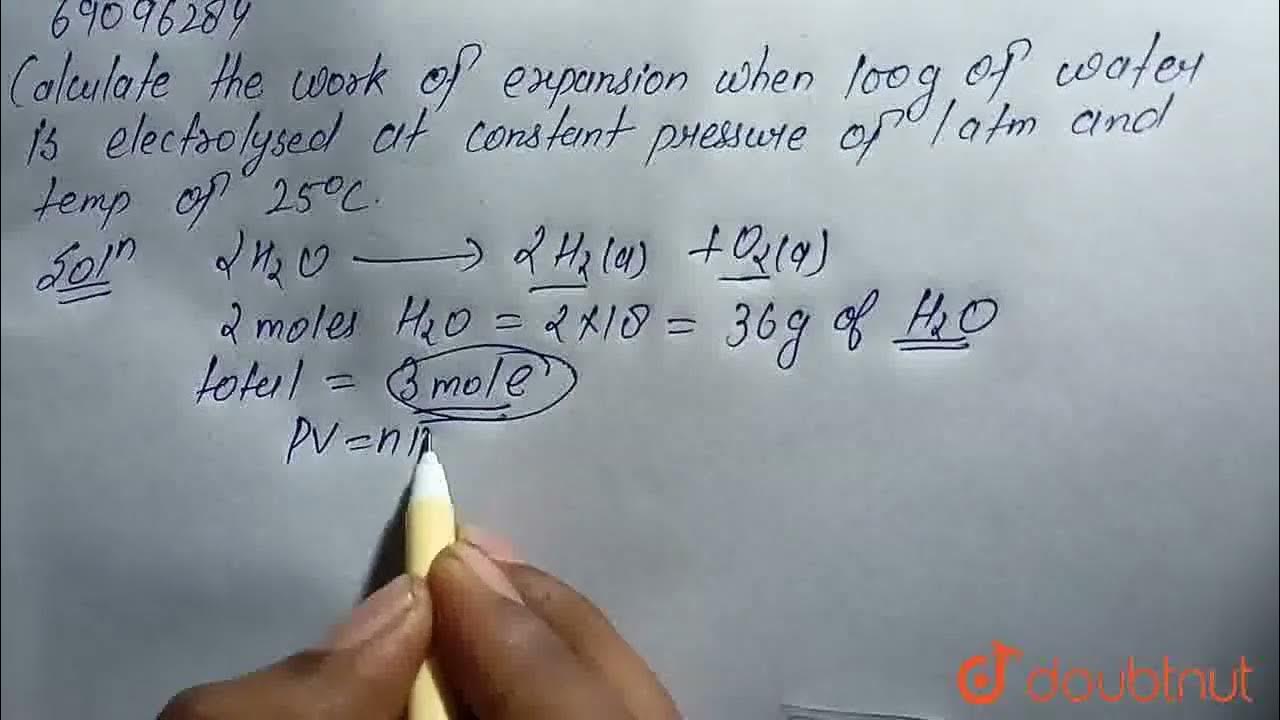 69096284
Calculate the work of expansion when 100g of water
is electrolysed at constant pressure of 1atm and
temp of 25°C.
Solⁿ 2H₂O ⟶ 2H₂(g) +O₂(g)
2 moles H₂O = 2×18 = 36g of H₂O
total = 3 mole
PV=n
doubtnut